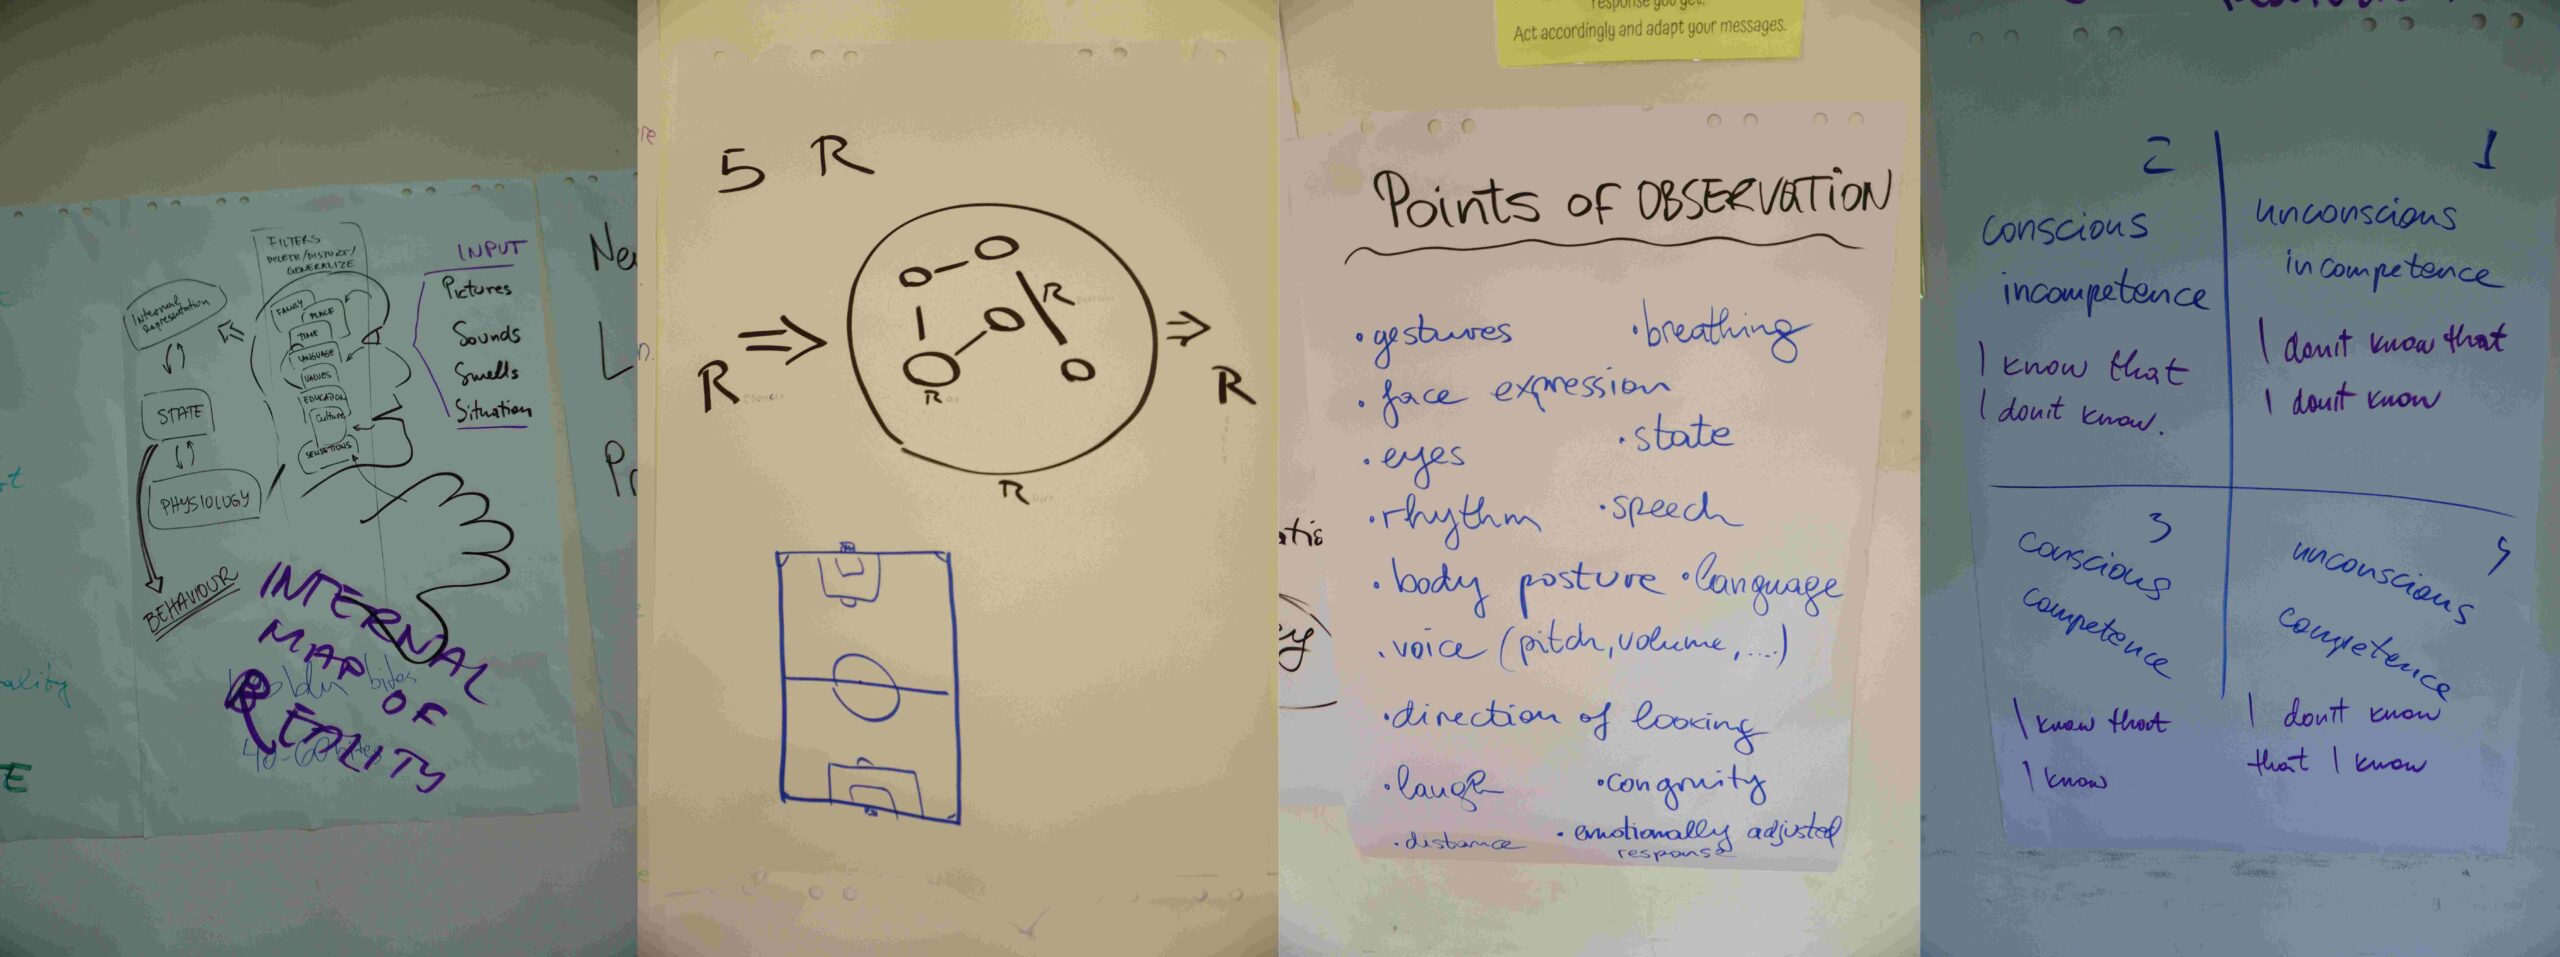 FILTERS
DELETE/DISTORT/
GENERALIZE
INPUT
Pictures
Sounds
Smells
Situation
Internal
Representation
FAMILY
PLACE
TIME
LANGUAGE
VALUES
EDUCATION
Culture
SENSETIONS
STATE
PHYSIOLOGY
BEHAVIOUR
INTERNAL
MAP OF
REALITY
bites
ality
E
Ne
L
Pr
5 R
R
R
R
R
R
response you get.
Act accordingly and adapt your messages.
Points of OBSERVATION
• gestures
• breathing
• face expression
• state
• eyes
• rhythm
• speech
• body posture
• language
• voice (pitch, volume, ....)
• direction of looking
• laugh
• congruity
• distance
• emotionally adjusted
response
2
conscious
incompetence
I know that
I don't know.
1
unconscious
incompetence
I don't know that
I don't know
3
conscious
competence
I know that
I know
4
unconscious
competence
I don't know
that I know